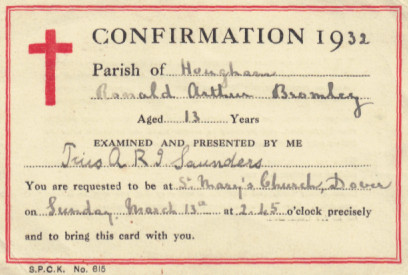 CONFIRMATION 1932
Parish of Hougham
Ronald Arthur Bromley
Aged 13 Years
EXAMINED AND PRESENTED BY ME
A R J Saunders
You are requested to be at St Mary's Church, Dover
on Sunday March 13th at 2.45 o'clock precisely
and to bring this card with you.
S.P.C.K. No. 615